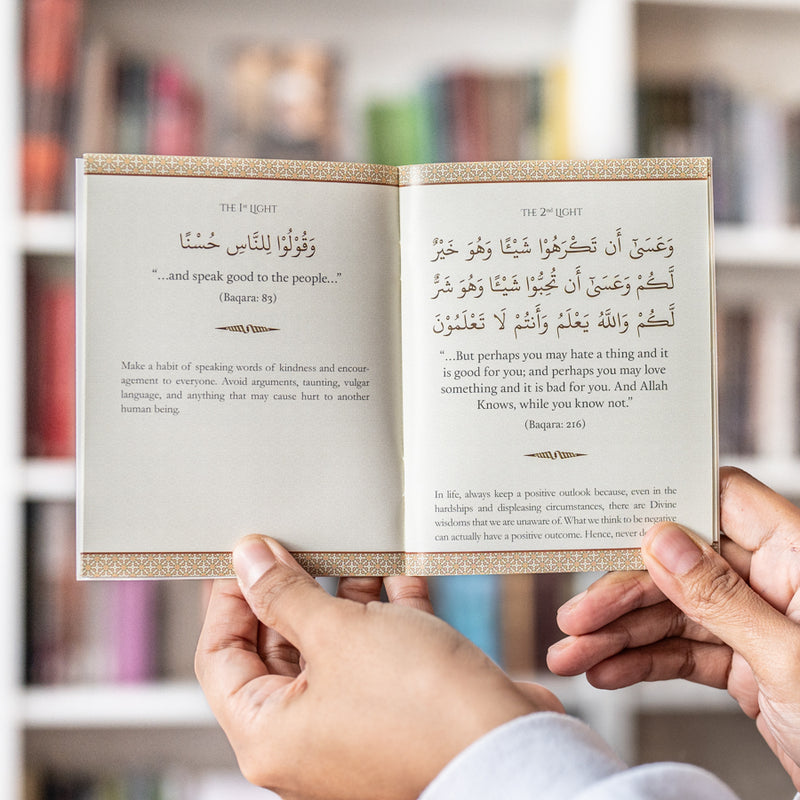 THE 1st LIGHT
وَقُوْلُوْا لِلنَّاسِ حُسْنًا
“...and speak good to the people...”
(Baqara: 83)
Make a habit of speaking words of kindness and encour-
agement to everyone. Avoid arguments, taunting, vulgar
language, and anything that may cause hurt to another
human being.
THE 2nd LIGHT
وَعَسَىٰٓ أَن تَكْرَهُوْا شَيْـًٔا وَهُوَ خَيْرٌ
لَّكُمْ وَعَسَىٰٓ أَن تُحِبُّوْا شَيْـًٔا وَهُوَ شَرٌّ
لَّكُمْ وَاللَّهُ يَعْلَمُ وَأَنتُمْ لَا تَعْلَمُوْنَ
“...But perhaps you may hate a thing and it
is good for you; and perhaps you may love
something and it is bad for you. And Allah
Knows, while you know not.”
(Baqara: 216)
In life, always keep a positive outlook because, even in the
hardships and displeasing circumstances, there are Divine
wisdoms that we are unaware of. What we think to be negative
can actually have a positive outcome. Hence, never